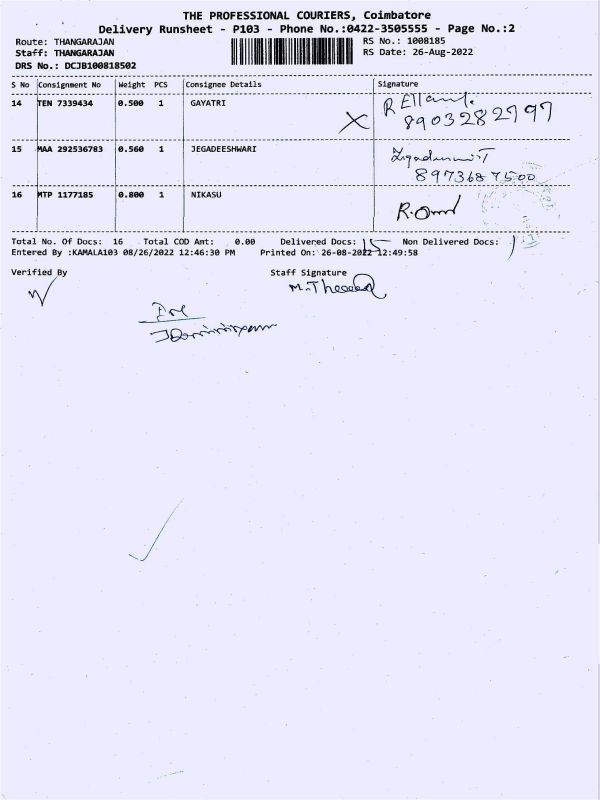 THE PROFESSIONAL COURIERS, Coimbatore
Delivery Runsheet - P103 - Phone No.:0422-3505555 - Page No.:2
Route: THANGARAJAN RS No.: 1008185
Staff: THANGARAJAN RS Date: 26-Aug-2022
DRS No.: DCJB100818502
S No Consignment No Weight PCS Consignee Details Signature
14 TEN 7339434 0.500 1 GAYATRI
8903282797
15 MAA 292536783 0.560 1 JEGADEESHWARI
8973687500
16 MTP 1177185 0.800 1 NIKASU
Total No. Of Docs: 16 Total COD Amt: 0.00 Delivered Docs: 15 Non Delivered Docs: 1
Entered By :KAMALA103 08/26/2022 12:46:30 PM Printed On: 26-08-2022 12:49:58
Verified By Staff Signature